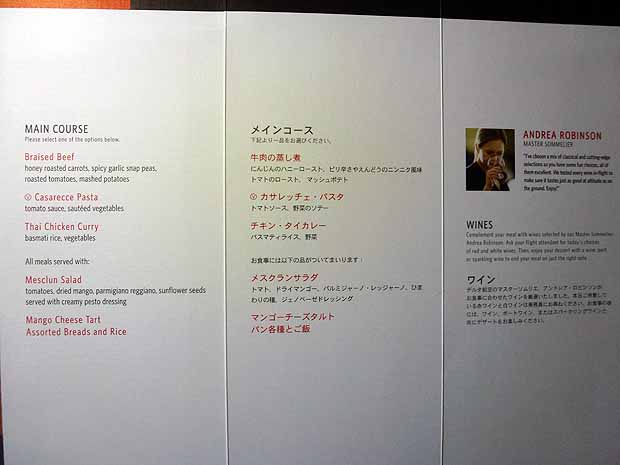 MAIN COURSE
Please select one of the options below.
Braised Beef
honey roasted carrots, spicy garlic snap peas,
roasted tomatoes, mashed potatoes
Ⓥ Casarecce Pasta
tomato sauce, sautéed vegetables
Thai Chicken Curry
basmati rice, vegetables
All meals served with:
Mesclun Salad
tomatoes, dried mango, parmigiano reggiano, sunflower seeds
served with creamy pesto dressing
Mango Cheese Tart
Assorted Breads and Rice
メインコース
下記より一品をお選びください。
牛肉の蒸し煮
にんじんのハニーロースト、ピリ辛さやえんどうのニンニク風味
トマトのロースト、 マッシュポテト
Ⓥ カサレッチェ・パスタ
トマトソース、野菜のソテー
チキン・タイカレー
バスマティライス、野菜
お食事には以下の品がついてまいります:
メスクランサラダ
トマト、ドライマンゴー、パルミジャーノ・レッジャーノ、ひま
わりの種、ジェノベーゼドレッシング
マンゴーチーズタルト
パン各種とご飯
ANDREA ROBINSON
MASTER SOMMELIER
"I've chosen a mix of classical and cutting-edge
selections so you have some fun choices, all of
them excellent. We tested every wine in-flight to
make sure it tastes just as good at altitude as on
the ground. Enjoy!"
WINES
Complement your meal with wines selected by our Master Sommelier
Andrea Robinson. Ask your flight attendant for today's choices
of red and white wines. Then, enjoy your dessert with a wine, port
or sparkling wine to end your meal on just the right note.
ワイン
デルタ航空のマスターソムリエ、アンドレア・ロビンソンが
お食事に合わせたワインを厳選いたしました。本日ご用意して
いる赤ワインと白ワインは乗務員にお尋ねください。お食事の後
には、ワイン、ポートワイン、またはスパークリングワインと
共にデザートをお楽しみください。